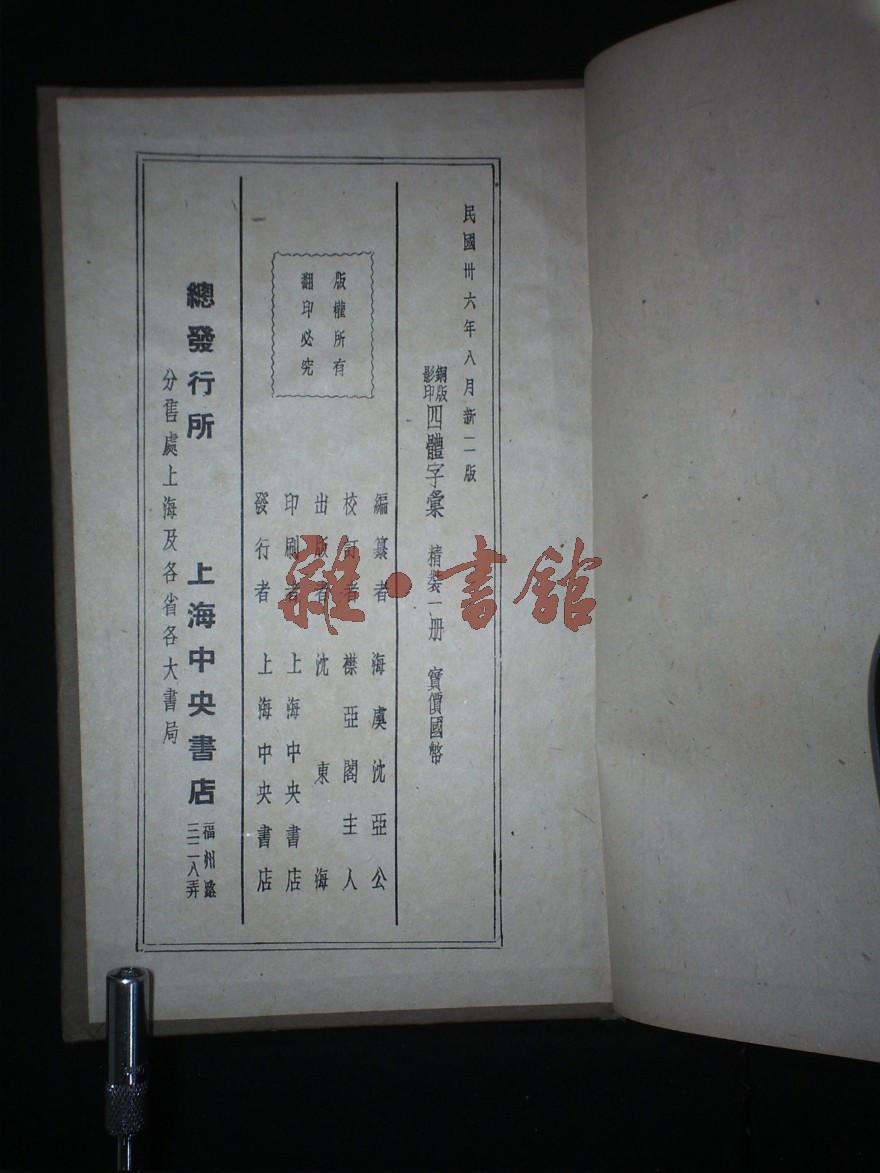 民國卅六年八月新二版
銅版影印四體字彙 精裝一册 實價國幣
版權所有
翻印必究
編纂者 海虞沈亞公
校訂者 襟亞閣主人
出版者 沈東海
印刷者 上海中央書店
發行者 上海中央書店
總發行所 上海中央書店 福州路三二八弄
分售處上海及各省各大書局
雜·書館